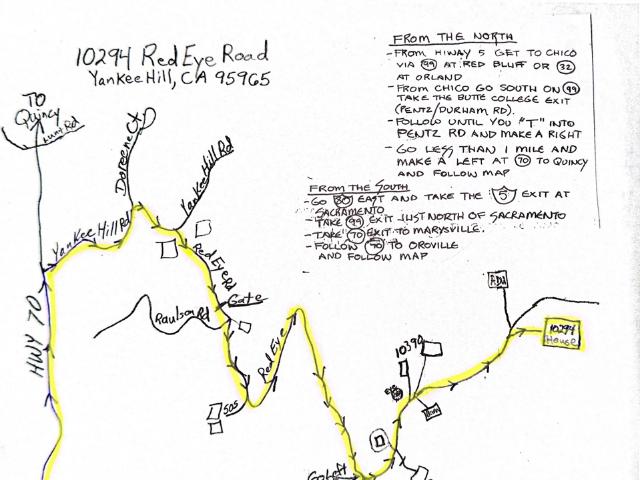 10294 Red Eye Road
Yankee Hill, CA 95965
FROM THE NORTH
-FROM HIWAY 5 GET TO CHICO
VIA 99 AT RED BLUFF OR 32
AT ORLAND
-FROM CHICO GO SOUTH ON 99
TAKE THE BUTTE COLLEGE EXIT
(PENTZ/DURHAM RD).
-FOLLOW UNTIL YOU "T" INTO
PENTZ RD AND MAKE A RIGHT
- GO LESS THAN 1 MILE AND
MAKE A LEFT AT 70 TO QUINCY
AND FOLLOW MAP
FROM THE SOUTH
-GO 80 EAST AND TAKE THE 5 EXIT AT
SACRAMENTO
-TAKE 99 EXIT JUST NORTH OF SACRAMENTO
-TAKE 70 EXIT TO MARYSVILLE.
-FOLLOW 70 TO OROVILLE
AND FOLLOW MAP
TO
Quincy
Lunt Rd
Doreene Ct
Yankee Hill Rd
Yankee Hill Rd
Red Eye Rd
Gate
Paulson Rd
HWY 70
Red Eye
505
10390
10294
House
Go Left